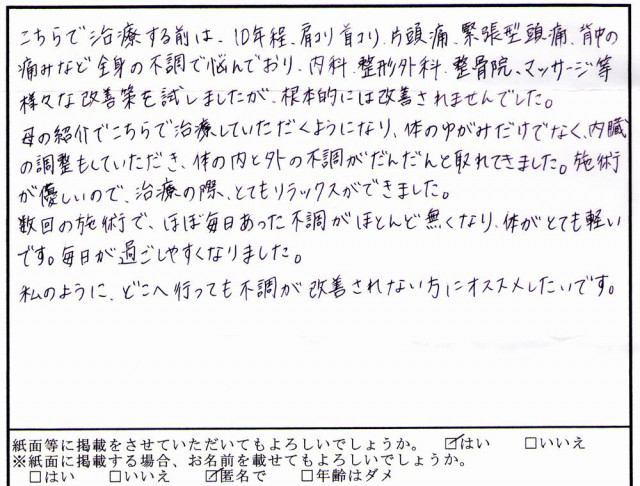 こちらで治療する前は、10年程、肩コリ首コリ、片頭痛、緊張型頭痛、背中の
痛みなど全身の不調で悩んでおり、内科、整形外科、整骨院、マッサージ等
様々な改善策を試しましたが、根本的には改善されませんでした。
母の紹介でこちらで治療していただくようになり、体のゆがみだけでなく、内臓
の調整もしていただき、体の内と外の不調がだんだんと取れてきました。施術
が優しいので、治療の際、とてもリラックスができました。
数回の施術で、ほぼ毎日あった不調がほとんど無くなり、体がとても軽い
です。毎日が過ごしやすくなりました。
私のように、どこへ行っても不調が改善されない方にオススメしたいです。
紙面等に掲載をさせていただいてもよろしいでしょうか。 ☑はい □いいえ
※紙面に掲載する場合、お名前を載せてもよろしいでしょうか。
□はい □いいえ ☑匿名で □年齢はダメ